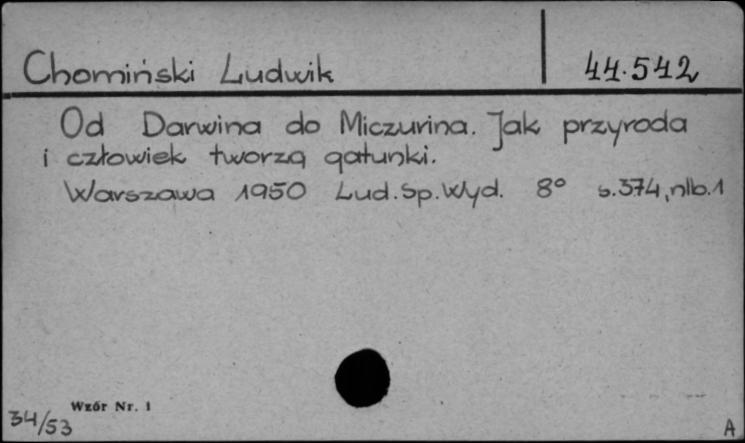 Chomiński Ludwik
44.542
Od Darwina do Miczurina. Jak przyroda
i człowiek tworzą gatunki.
Warszawa 1950 Lud.Sp.Wyd. 8° s.374,nlb.1
Wzór Nr. 1
34/53
A